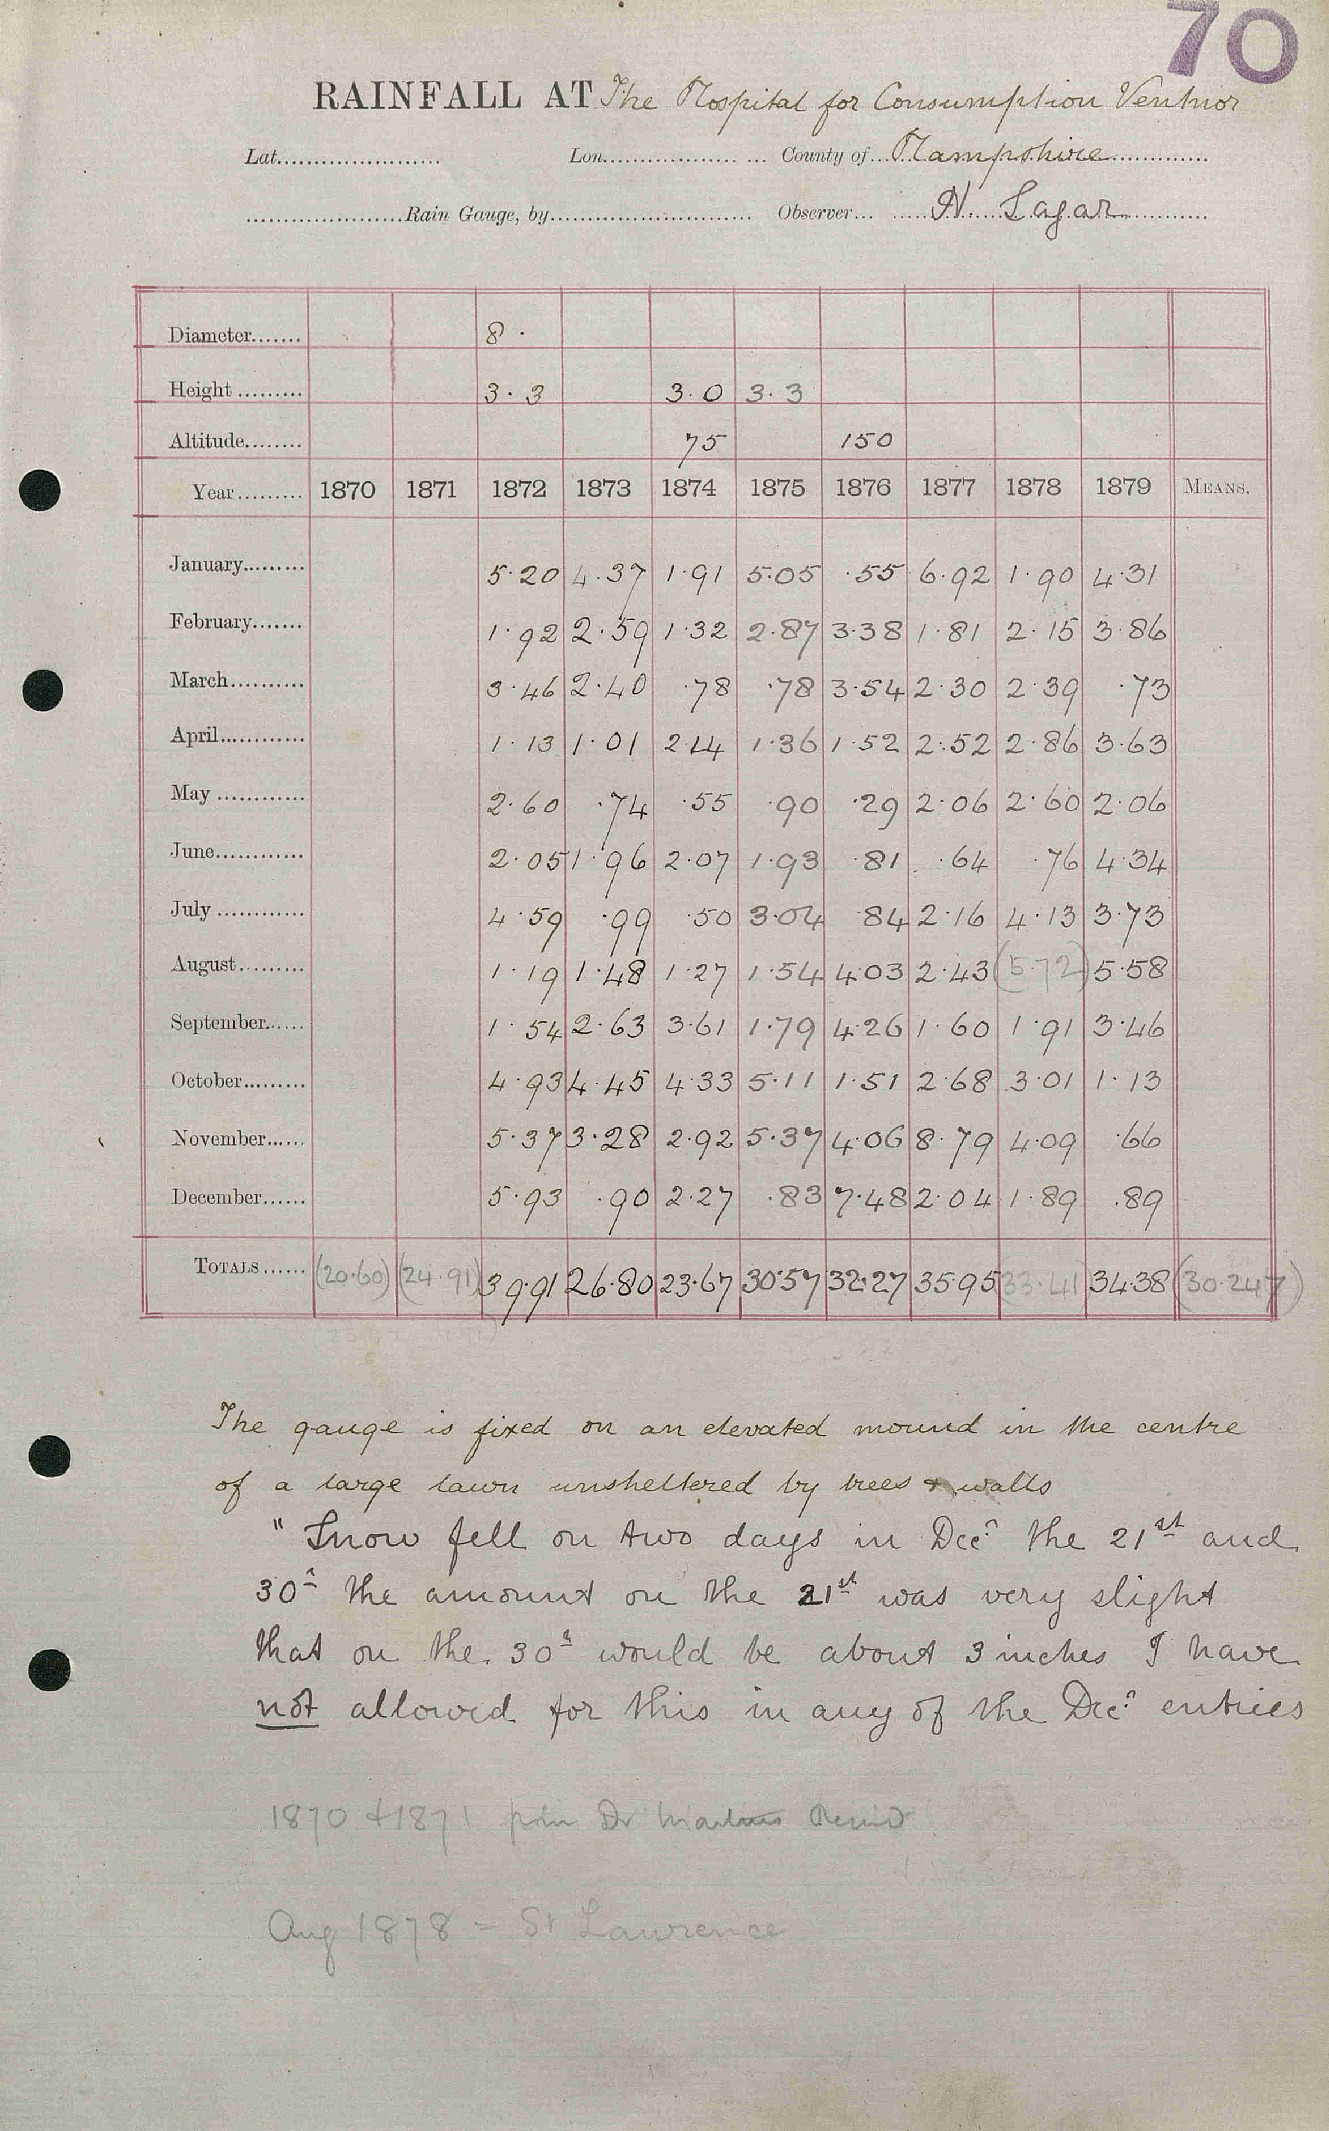 70
RAINFALL AT The Hospital for Consumption Ventnor
Lat. Lon. County of Hampshire
Rain Gauge, by Observer H. Sagar
Diameter 8·
Height 3·3 3·0 3·3
Altitude 75 150
Year 1870 1871 1872 1873 1874 1875 1876 1877 1878 1879 MEANS.
January 5·20 4·37 1·91 5·05 ·55 6·92 1·90 4·31
February 1·92 2·59 1·32 2·87 3·38 1·81 2·15 3·86
March 3·46 2·40 ·78 ·78 3·54 2·30 2·39 ·73
April 1·13 1·01 2·14 1·36 1·52 2·52 2·86 3·63
May 2·60 ·74 ·55 ·90 ·29 2·06 2·60 2·06
June 2·05 1·96 2·07 1·93 ·81 ·64 ·76 4·34
July 4·59 ·99 ·50 3·04 ·84 2·16 4·13 3·73
August 1·19 1·48 1·27 1·54 4·03 2·43 (5·72) 5·58
September 1·54 2·63 3·61 1·79 4·26 1·60 1·91 3·46
October 4·93 4·45 4·33 5·11 1·51 2·68 3·01 1·13
November 5·37 3·28 2·92 5·37 4·06 8·79 4·09 ·66
December 5·93 ·90 2·27 ·83 7·48 2·04 1·89 ·89
TOTALS (20·60) (24·91) 39·91 26·80 23·67 30·57 32·27 35·95 (33·41) 34·38 (30·247)
The gauge is fixed on an elevated mound in the centre
of a large lawn unsheltered by trees & walls
" Snow fell on two days in Decr the 21st and
30th the amount on the 21st was very slight
that on the 30th would be about 3 inches I have
not allowed for this in any of the Decr entries
1870 & 1871 from Dr
Aug 1878 = St Lawrence